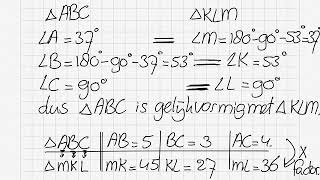 △ABC △KLM
∠A = 37° = ∠M = 180° - 90° - 53° = 37°
∠B = 180° - 90° - 37° = 53° = ∠K = 53°
∠C = 90° = ∠L = 90°
dus △ABC is gelijkvormig met △KLM
△ABC | AB = 5 | BC = 3 | AC = 4
△MKL | MK = 45 | KL = 27 | ML = 36 x